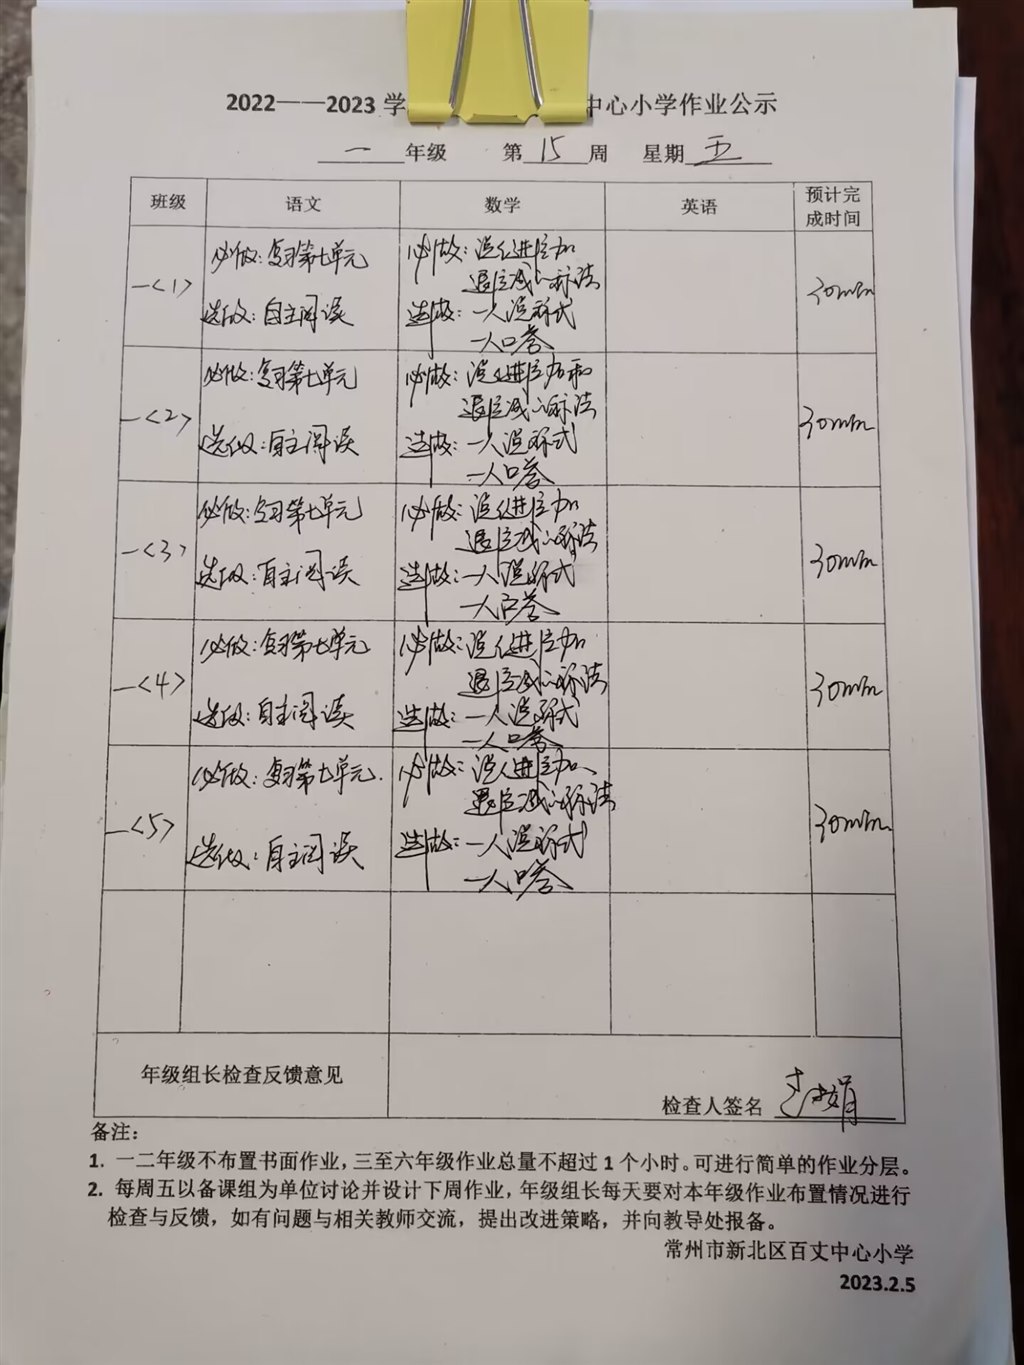 2022——2023 学 中心小学作业公示
一 年级 第 15 周 星期 五
班级 语文 数学 英语 预计完成时间
一<1> 必做：复习第七单元 必做：说仅进位加 30min
退位减的算法
选做：自主阅读 选做：一人说算式
一人口答
一<2> 必做：复习第七单元 必做：说仅进位加和 30min
退位减的算法
选做：自主阅读 选做：一人说算式
一人口答
一<3> 必做：复习第七单元 必做：说仅进位加 30min
退位减的算法
选做：自主阅读 选做：一人说算式
一人口答
一<4> 必做：复习第七单元 必做：说仅进位加 30min
退位减的算法
选做：自主阅读 选做：一人说算式
一人口答
一<5> 必做：复习第七单元. 必做：说仅进位加、 30min
退位减的算法
选做：自主阅读 选做：一人说算式
一人口答
年级组长检查反馈意见
检查人签名
备注：
1. 一二年级不布置书面作业，三至六年级作业总量不超过 1 个小时。可进行简单的作业分层。
2. 每周五以备课组为单位讨论并设计下周作业，年级组长每天要对本年级作业布置情况进行
检查与反馈，如有问题与相关教师交流，提出改进策略，并向教导处报备。
常州市新北区百丈中心小学
2023.2.5